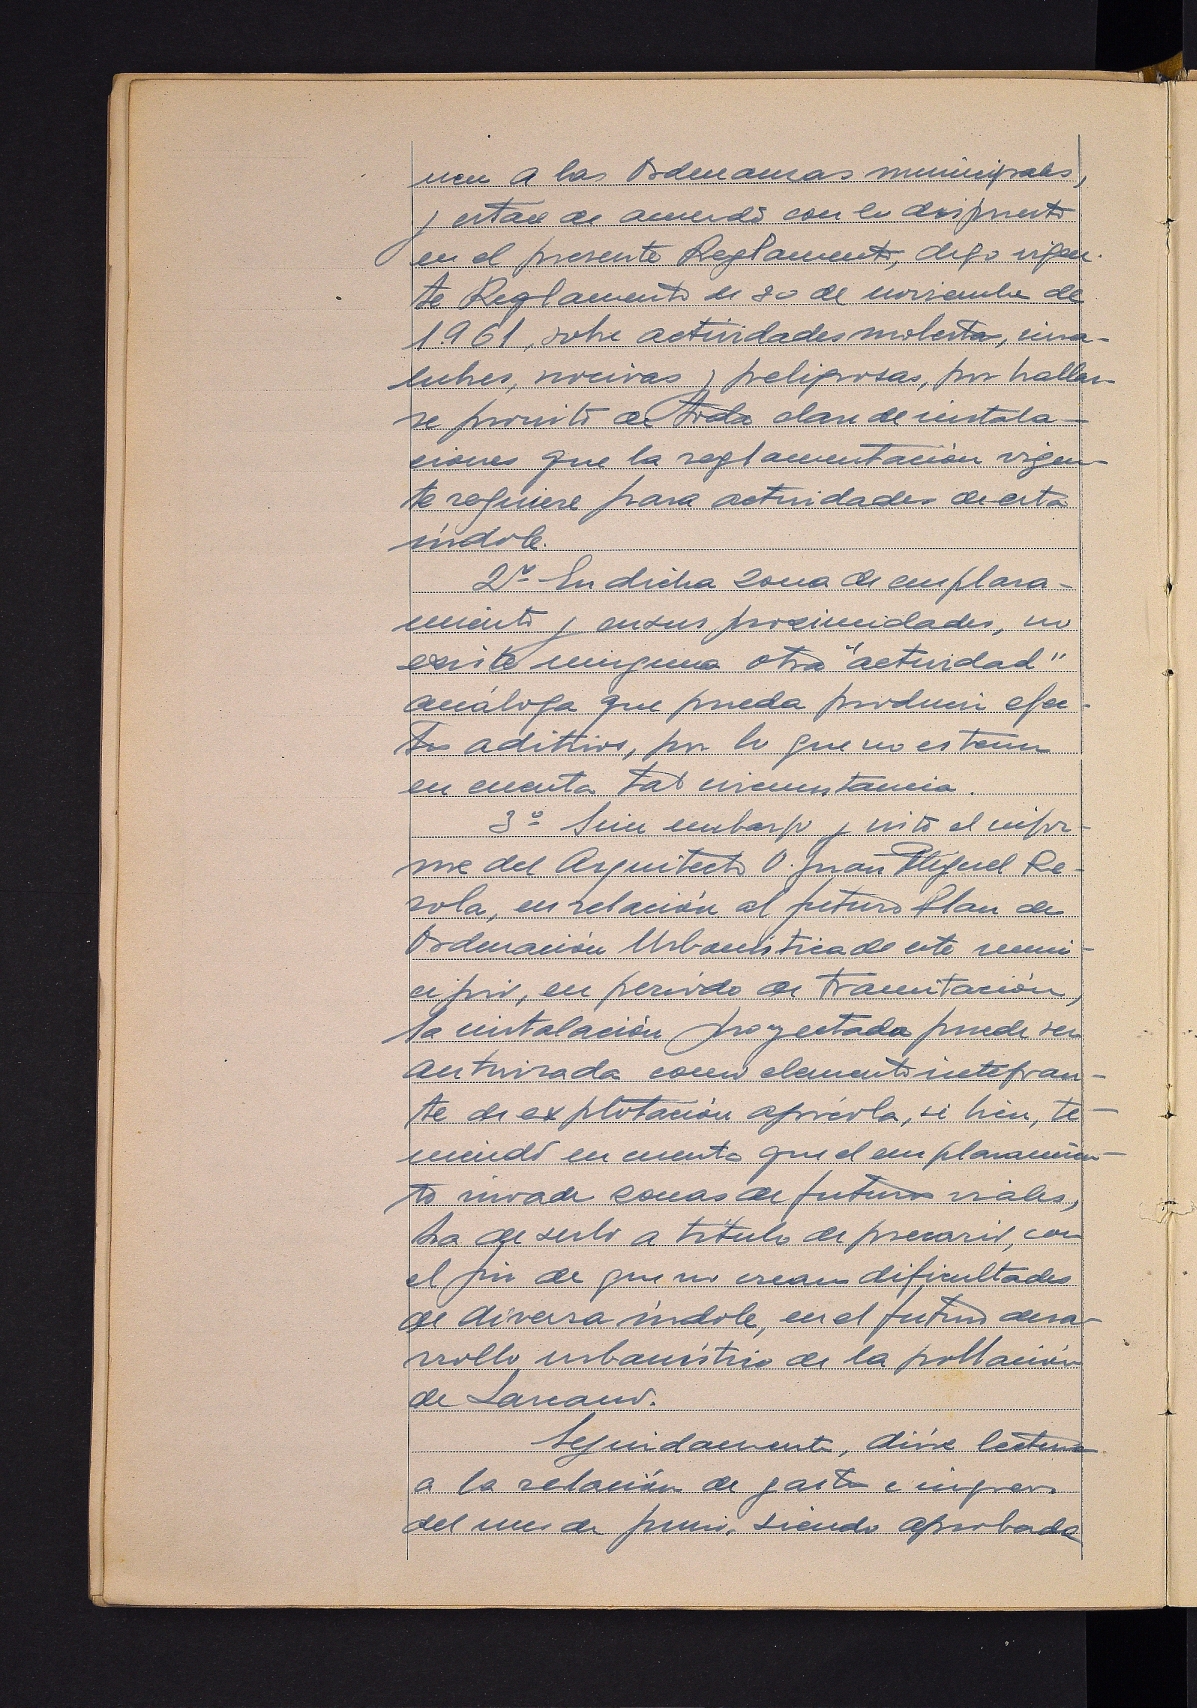 nen a las Ordenanzas municipales,
y estar de acuerdo con lo dispuesto
en el presente Reglamento, digo vigen-
te Reglamento de 30 de noviembre de
1.961, sobre actividades molestas, insa-
lubres, nocivas y peligrosas, por hallar-
se provisto de toda clase de instala-
ciones que la reglamentación vigen-
te requiere para actividades de esta
índole.
2º- En dicha zona de emplaza-
miento y en sus proximidades, no
existe ninguna otra "actividad"
análoga que pueda producir efec-
tos aditivos, por lo que no es tener
en cuenta tal circunstancia.
3º Sin embargo y visto el infor-
me del Arquitecto D. Juan Miguel Re-
zola, en relación al futuro Plan de
Ordenación Urbanística de este muni-
cipio, en período de tramitación,
la instalación proyectada puede ser
autorizada como elemento integran-
te de explotación agrícola, si bien, te-
niendo en cuenta que el emplazamien-
to invade zonas de futuros viales,
ha de serlo a título de precario, con
el fin de que no crean dificultades
de diversa índole, en el futuro desa-
rrollo urbanístico de la población
de Lazcano.
Seguidamente, dióse lectura
a la relación de gastos e ingresos
del mes de junio, siendo aprobada